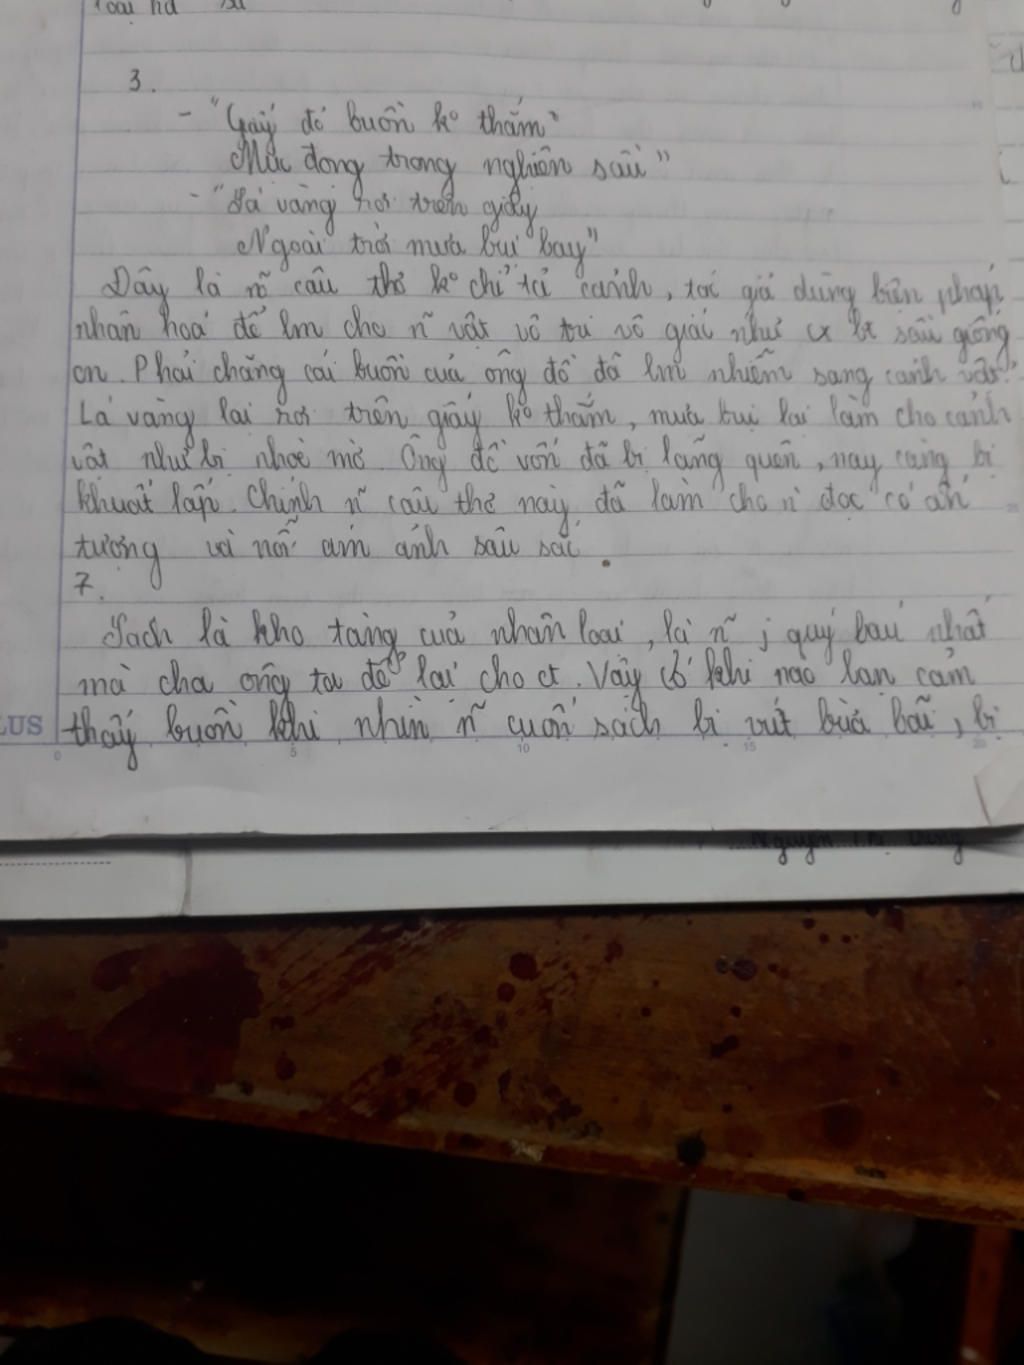 3.
- "Giấy đỏ buồn ko thắm"
Mực đọng trong nghiên sầu"
- "Lá vàng rơi trên giấy
Ngoài trời mưa bụi bay"
Đây là n~ câu thơ ko chỉ tả cảnh, tác giả dùng biện pháp
nhân hoá để lm cho n~ vật vô tri vô giác như cx bt sầu giống
cn. Phải chăng cái buồn của ông đồ đã lm nhiễm sang cảnh vật?
Lá vàng lại rơi trên giấy ko thắm, mưa bụi lại làm cho cảnh
vật như bị nhoè mờ. Ông đồ vốn đã bị lãng quên, nay càng bị
khuất lấp. Chính n~ câu thơ này đã làm cho n' đọc có ấn
tượng và nỗi ám ảnh sâu sắc.
7.
Sách là kho tàng của nhân loại, là n~ j quý báu nhất
mà cha ông ta để lại cho ct. Vậy có khi nào bạn cảm
thấy buồn khi nhìn n~ cuốn sách bị vứt bừa bãi, bị
LUS
0 5 10 15 20